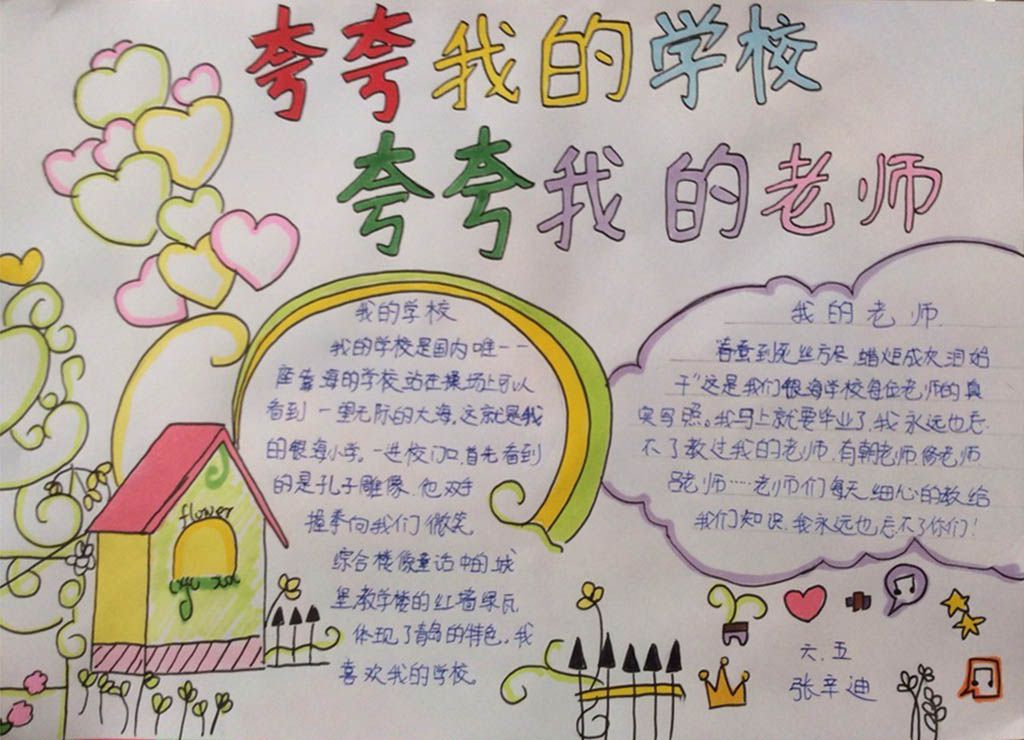 夸夸我的学校
夸夸我的老师
我的学校
我的学校是国内唯一一
座靠海的学校,站在操场上可以
看到一望无际的大海。这就是我
的银海小学。一进校门口,首先看到
的是孔子雕像,他双手
握拳向我们微笑
综合楼像童话中的城
堡,教学楼的红墙绿瓦
体现了青岛的特色。我
喜欢我的学校。
flower
我的老师
春蚕到死丝方尽,蜡炬成灰泪始
干"这是我们银海学校每位老师的真
实写照。我马上就要毕业了,我永远也忘
不了教过我的老师,有朝老师、修老师、
吕老师……老师们每天细心的教给
我们知识,我永远也忘不了你们!
六.五
张辛迪